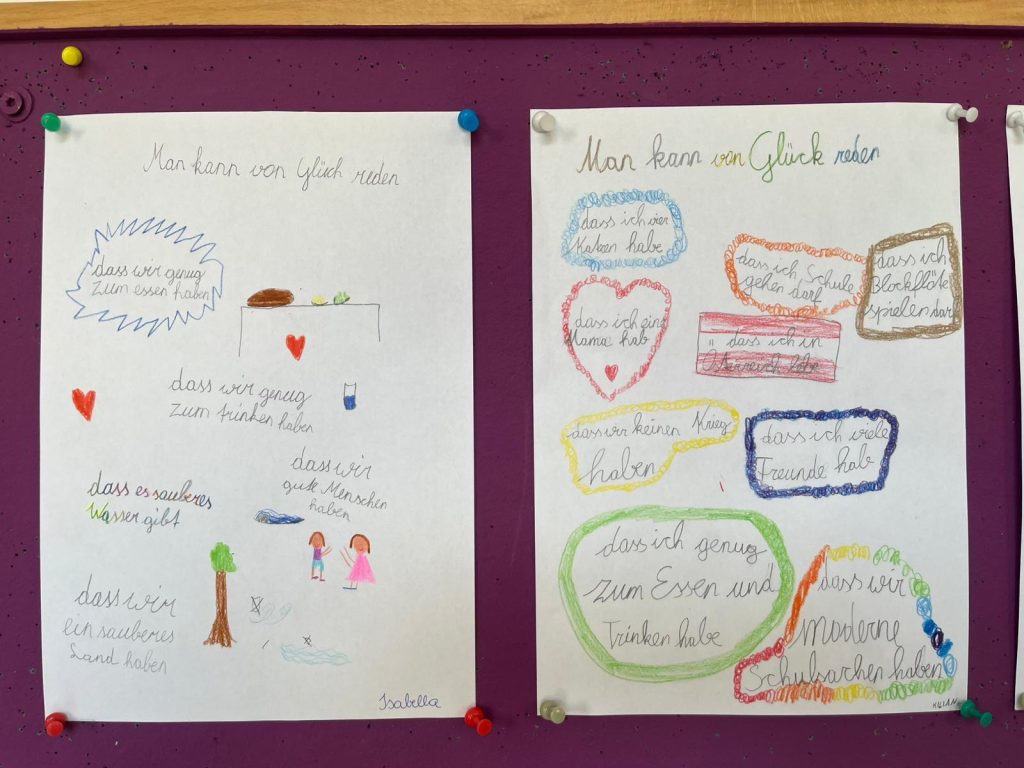 Man kann von Glück reden
dass wir genug
zum essen haben
dass wir genug
zum trinken haben
dass wir
gute Menschen
haben
dass es sauberes
Wasser gibt
dass wir
ein sauberes
Land haben
Isabella
Man kann von Glück reden
dass ich vier
Katzen habe
dass ich Schule
gehen darf
dass ich
Blockflöte
spielen darf
dass ich eine
Mama hab
dass ich in
Österreich lebe
dass wir keinen Krieg
haben
dass ich viele
Freunde hab
dass ich genug
zum Essen und
Trinken habe
dass wir
moderne
Schulsachen haben
KILIAN